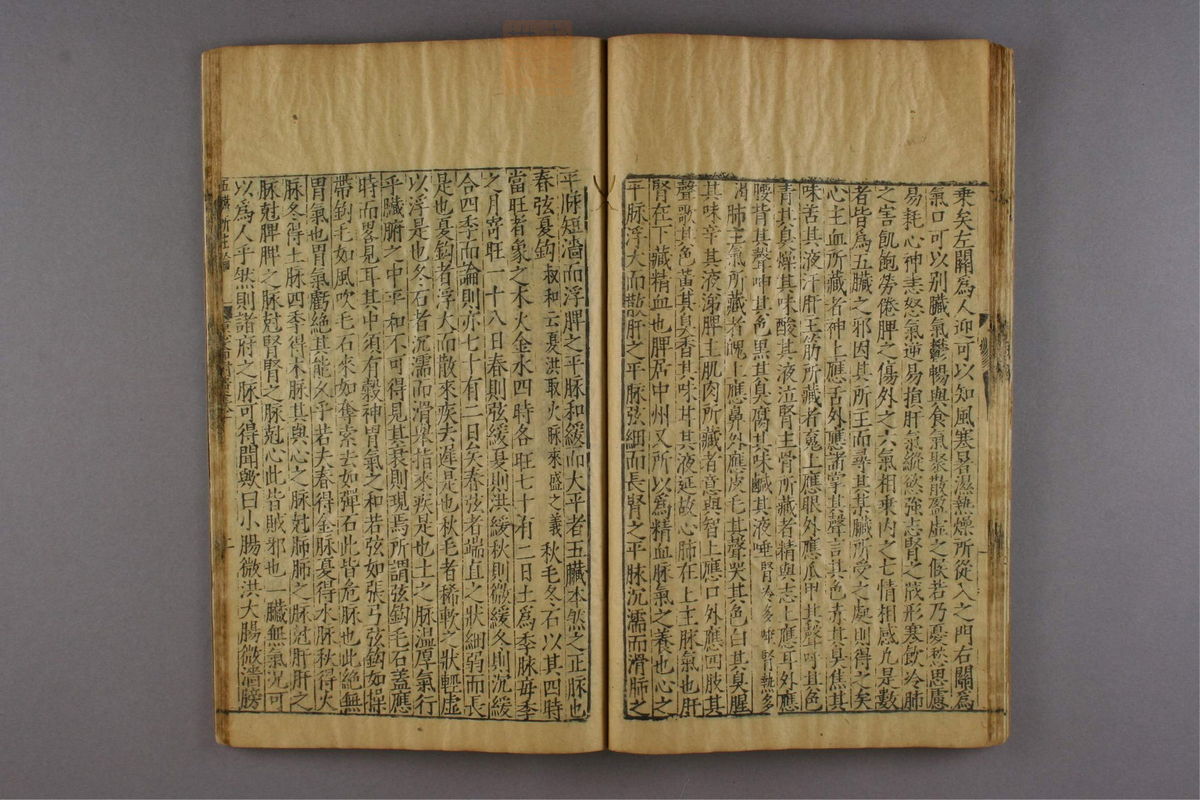 乗矣左關爲人迎可以知風寒暑濕熱燥所從入之門右關爲
氣口可以别臟氣鬱暢與食氣聚散盈虛之候若乃憂愁思慮
易耗心神恚怒氣逆易損肝氣縱慾強志腎之戕形寒飲冷肺
之害飢飽勞倦脾之傷外之六氣相乗内之七情相感凡是數
者皆爲五臟之邪因其所王而尋其某臟所受之處則得之矣
心主血所藏者神上應舌外應諸掌其聲言其色赤其臭焦其
味苦其液汗肝主筋所藏者魂上應眼外應爪甲其聲呼其色
青其臭燥其味酸其液泣腎主骨所藏者精與志上應耳外應
腰背其聲呻其色黒其臭腐其味鹹其液唾腎冷多唾腎熱多
肺主氣所藏者魄上應鼻外應皮毛其聲哭其色白其臭腥
其味辛其液涕脾主肌肉所藏者意與智上應口外應四肢其
聲歌其色黃其臭香其味甘其液延故心肺在上主脉氣也肝
腎在下藏精血也脾居中州又所以爲精血脉氣之養也心之
平脉浮大而散肝之平脉弦細而長腎之平脉沉濡而滑肺之
平脉短濇而浮脾之平脉和緩而大平者五臟本然之正脉也
春弦夏鈎叔和云夏洪取火脉來盛之義秋毛冬石以其四時
當旺者象之木火金水四時各旺七十有二日土爲季脉毎季
之月寄旺一十八日春則弦緩夏則洪緩秋則微緩冬則沉緩
合四季而論則亦七十有二日矣春弦者端直之狀細弱而長
是也夏鈎者浮大而散來疾去遲是也秋毛者稀軟之狀輕虛
以浮是也冬石者沉濡而滑舉指來疾是也土之脉温厚氣行
乎臟腑之中平和不可得見其衰則現焉所謂弦鈎毛石蓋應
時而畧見耳其中須有穀神胃氣之和若弦如張弓弦鈎如操
帶鈎毛如風吹毛石來如奪索去如彈石此皆危脉也此絶無
胃氣也胃氣虧絶其能久乎若夫春得金脉夏得水脉秋得火
脉冬得土脉四季得木脉其與心之脉尅肺肺之脉尅肝肝之
脉尅脾脾之脉尅腎腎之脉尅心此皆賊邪也一臟無氣況可
以爲人乎然則諸府之脉可得聞歟曰小腸微洪大腸微濇膀